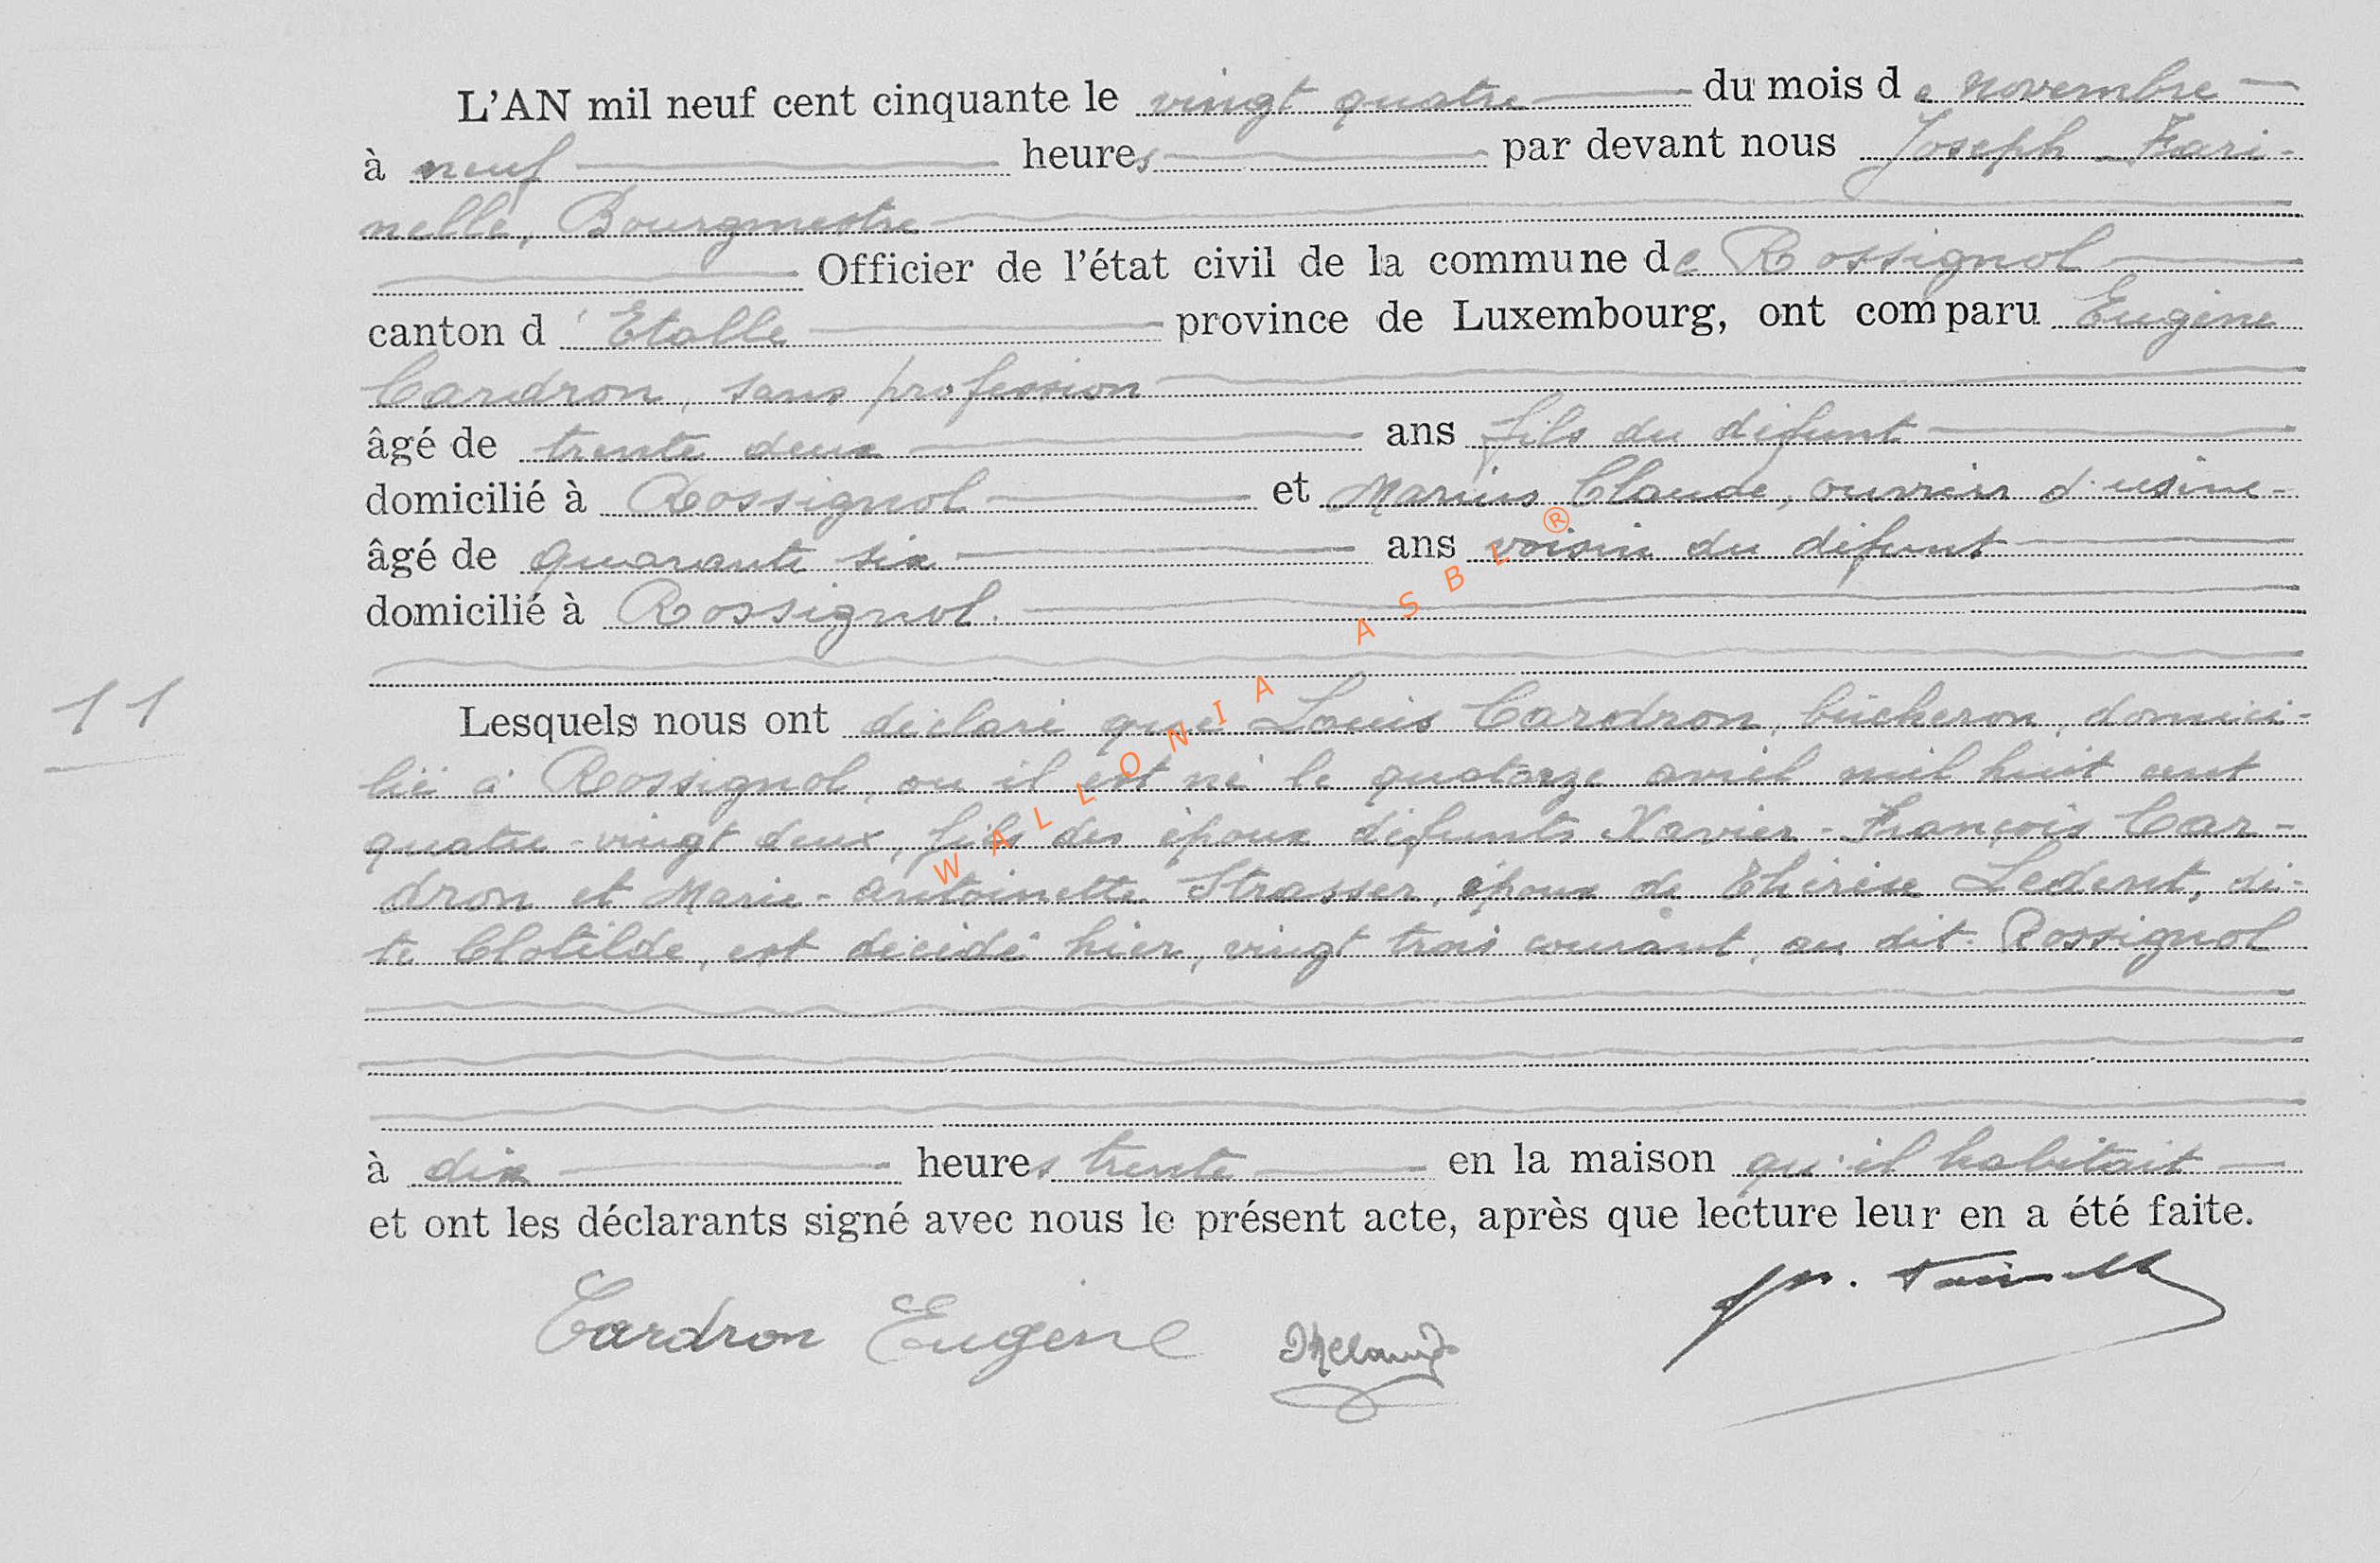 L'AN mil neuf cent cinquante le vingt quatre du mois de novembre
à neuf heures par devant nous Joseph Fari-
nelle, Bourgmestre
Officier de l'état civil de la commune de Rossignol
canton d'Etalle province de Luxembourg, ont comparu Eugène
Cardron, sans profession
âgé de trente deux ans fils du défunt
domicilié à Rossignol et Marius Claude, ouvrier d'usine
âgé de quarante six ans voisin du défunt
domicilié à Rossignol.
11
Lesquels nous ont déclaré que Louis Cardron, bûcheron, domici-
lié à Rossignol, ou il est né le quatorze avril mil huit cent
quatre-vingt deux, fils des époux défunts Xavier-François Car-
dron et Marie-Antoinette Strasser, époux de Thérèse Ledent, di-
te Clotilde, est décédé hier, vingt trois courant, au dit Rossignol
à dix heures trente en la maison qu'il habitait
et ont les déclarants signé avec nous le présent acte, après que lecture leur en a été faite.
Cardron Eugene
WALLONIA ASBL ®